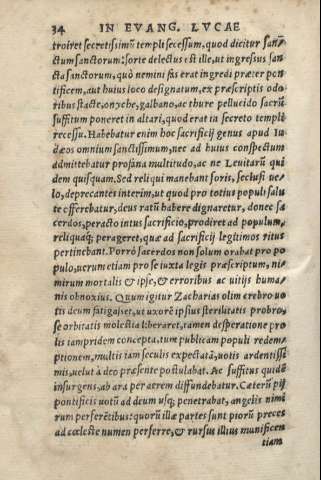 34 IN EVANG. LVCAE
troiret secretissimũ templi secessum, quod dicitur san-
ctum sanctorum: sorte delectus est ille, ut ingressus san-
cta sanctorum, quò nemini fas erat ingredi præter pon
tificem, aut huius loco designatum, ex præscriptis odo
ribus stacte, onyche, galbano, ac thure pellucido sacrũ
suffitum poneret in altari, quod erat in secreto templi
recessu. Habebatur enim hoc sacrificij genus apud Iu
dæos omnium sanctissimum, nec ad huius conspectum
admittebatur profana multitudo, ac ne Leuitarũ qui
dem quisquam. Sed reliqui manebant foris, seclusi ue-
lo, deprecantes interim, ut quod pro totius populi salu
te efferebatur, deus ratũ habere dignaretur, donec sa
cerdos, peracto intus sacrificio, prodiret ad populum,
reliquaq; perageret, quæ ad sacrificij legitimos ritus
pertinebant. Porrò sacerdos non solum orabat pro po
pulo, uerum etiam pro se iuxta legis præscriptum, ni-
mirum mortalis & ipse, & erroribus ac uitijs huma-
nis obnoxius. Quum igitur Zacharias olim crebro uo
tis deum fatigasset, ut uxorẽ ipsius sterilitatis probro,
se orbitatis molestia liberaret, tamen desperatione pro
lis iampridem concepta, tum publicam populi redem-
ptionem, multis iam seculis expectatã, uotis ardentissi
mis, uelut à deo præsente postulabat. Ac suffitus quidẽ
insurgens, ab ara per aërem diffundebatur. Cæterũ pij
pontificis uotũ ad deum usq; penetrabat, angelis nimi
rum perferẽtibus: quorũ illæ partes sunt piorũ preces
ad cœleste numen perferre, & rursus illius munificen
tiam